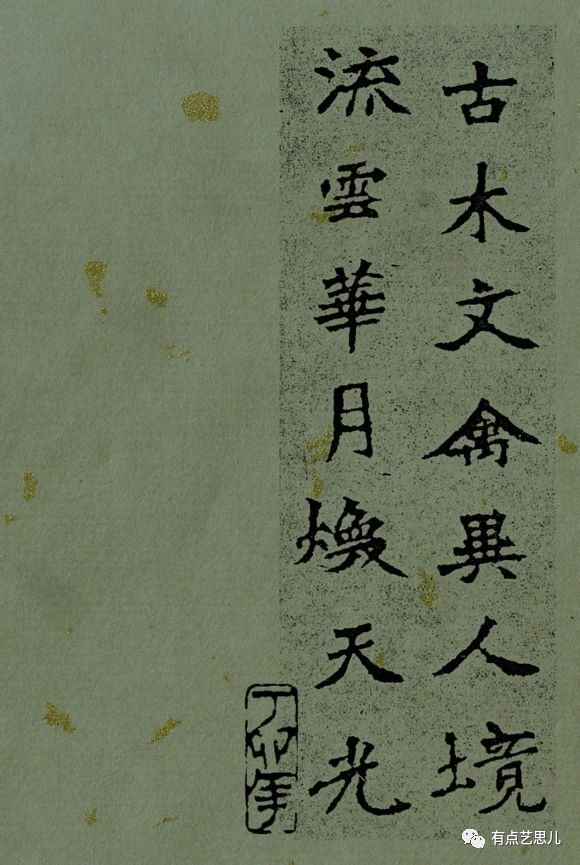 古木文禽異人境
流雲華月煥天光
丁卯年
有点艺思儿